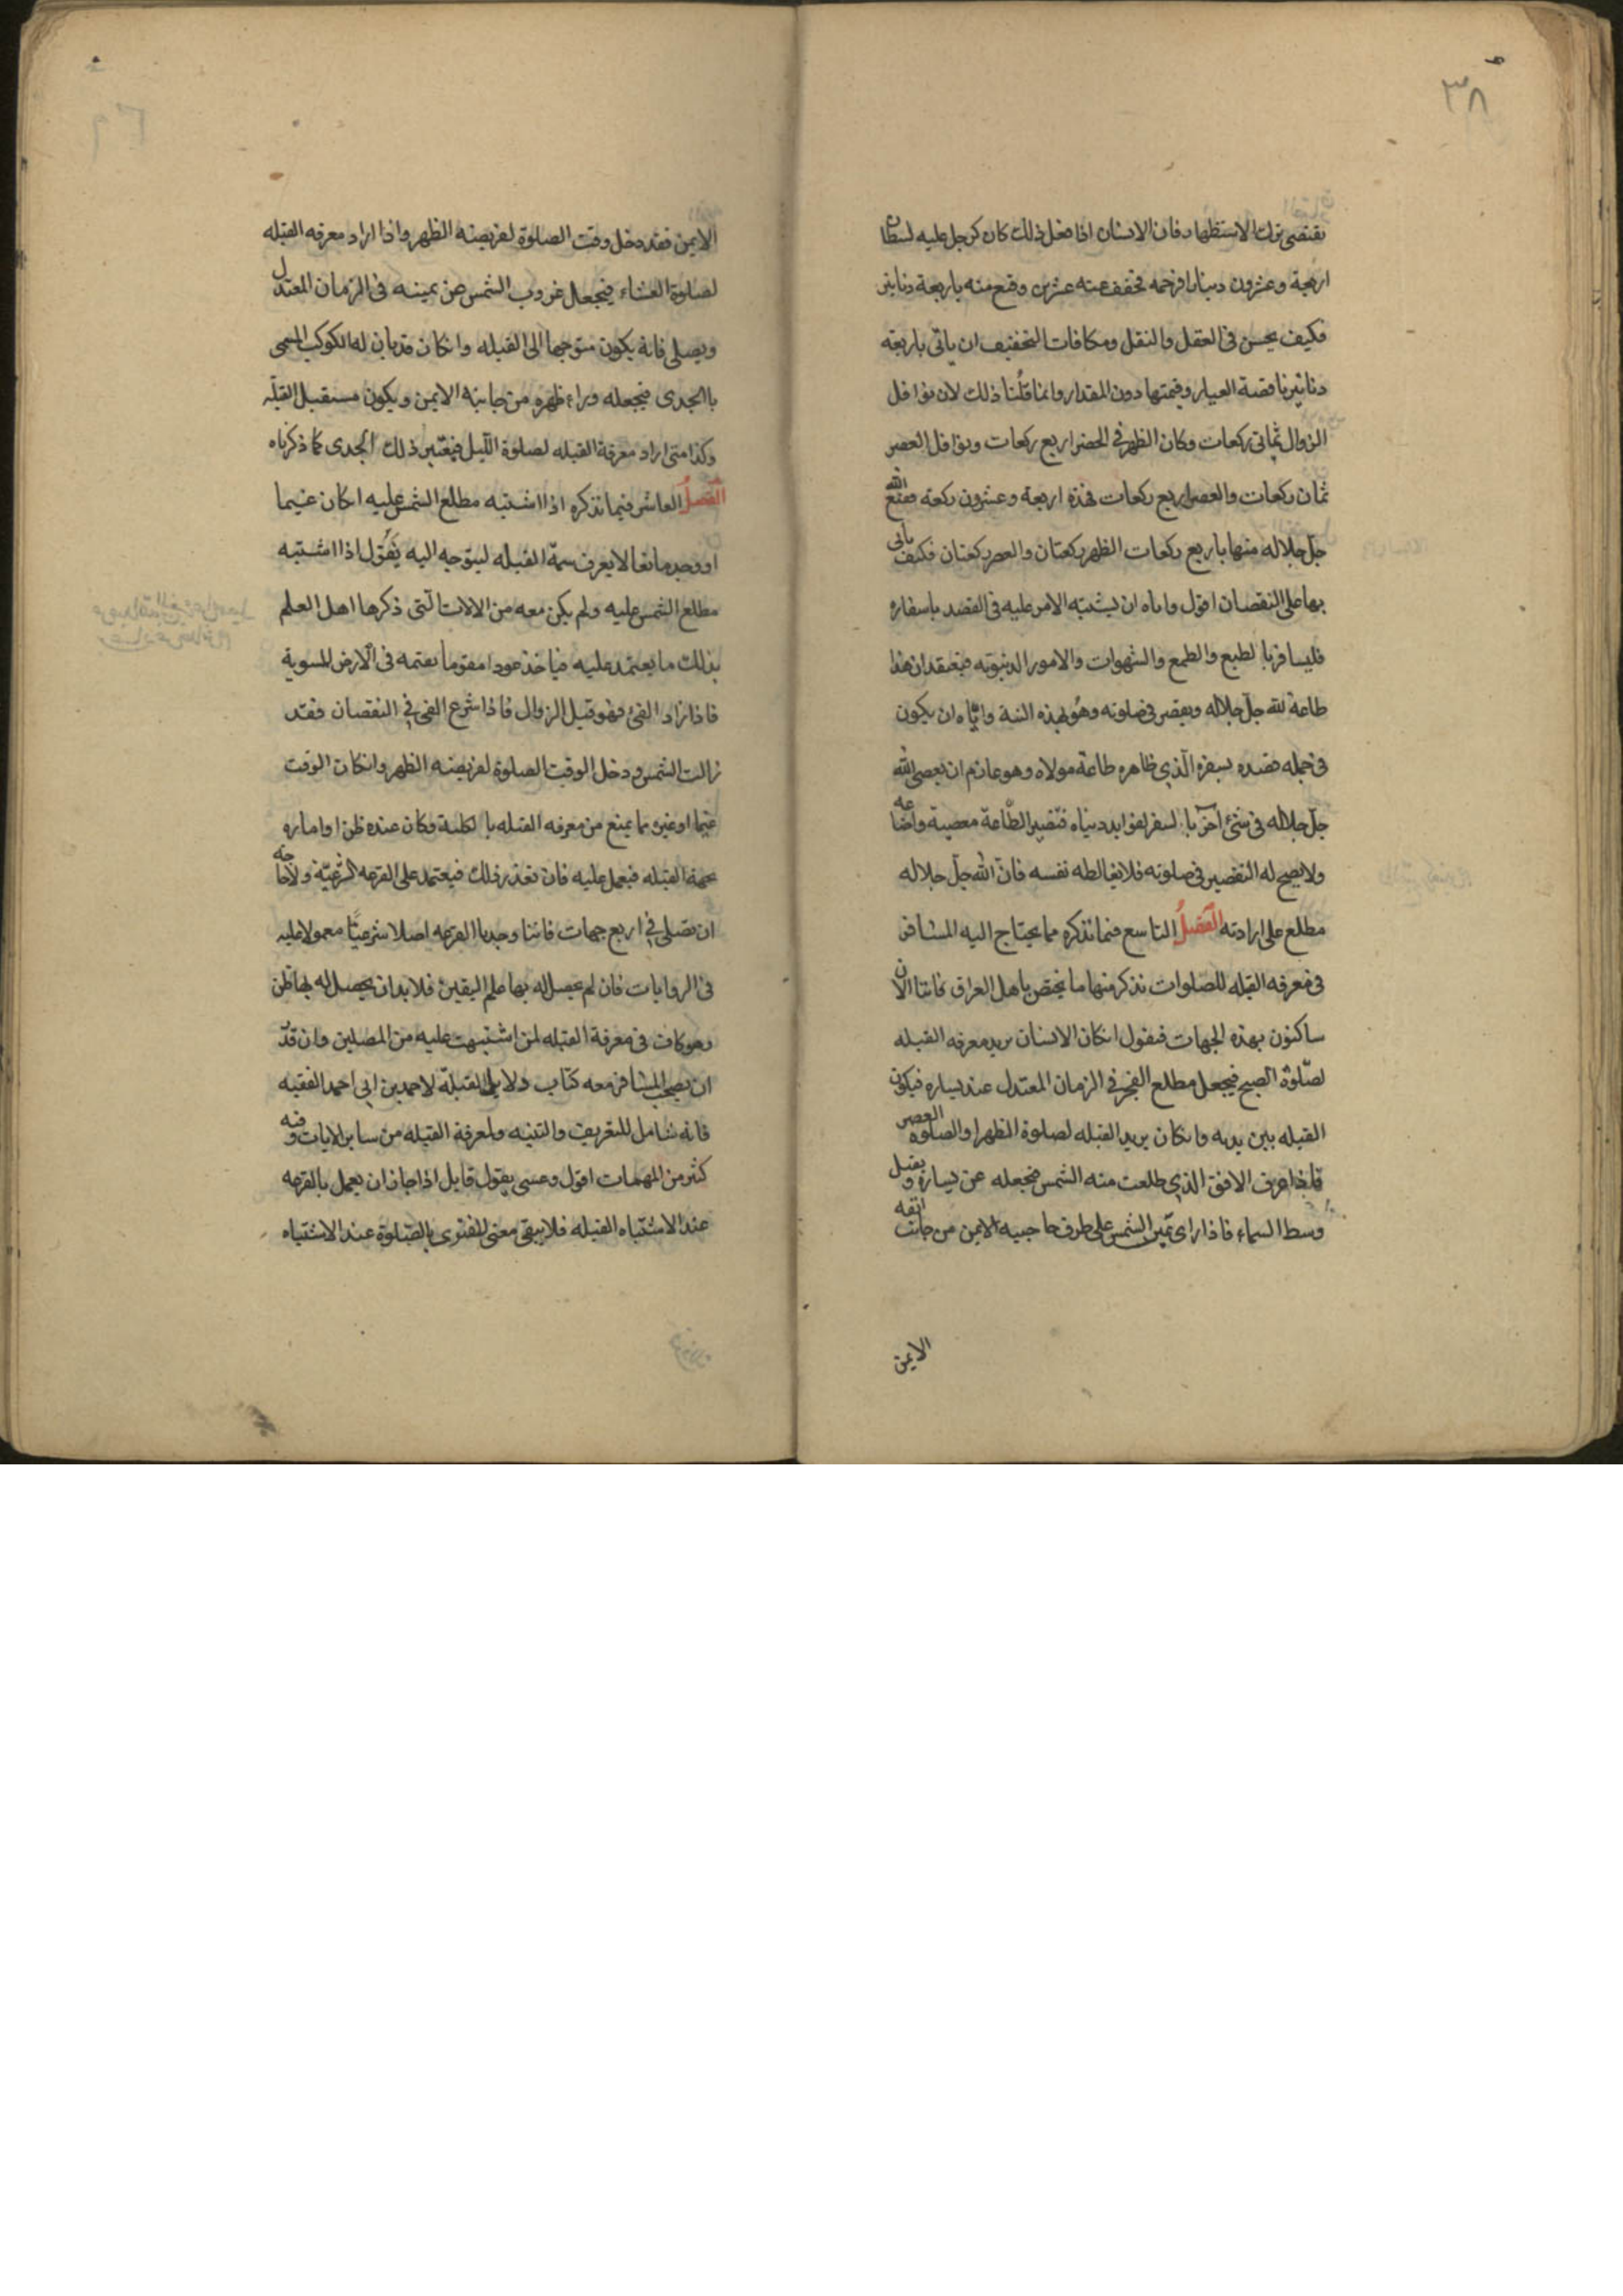 ٣٨
يقتضى ترك الاستظهار فان الانسان اذا فعل ذلك كان كرجل عليه لسطان
اربعة وعشرون دينارا فرحمه فخفف عنه عشرين وقنع منه باربعة دنانير
فكيف يحسن فى العقل والنقل ومكافات التخفيف ان ياتى باربعة
دنانير ناقصة العيار وقيمتها دون المقدار وانما قلنا ذلك لان نوافل
الزوال ثمانى ركعات وكان الظهر فى الحضر اربع ركعات ونوافل العصر
ثمان ركعات والعصر اربع ركعات فهذه اربعة وعشرون ركعة فقنع الله
جل جلاله منها باربع ركعات الظهر ركعتان والعصر ركعتان فكيف ياتى
بها على النقصان اقول واياه ان يشتبه الامر عليه فى القصد باسفاره
فليسافر بالطبع والطمع والشهوات والامور الدنيويه فيعتقد ان هذا
طاعة لله جل جلاله ويقصر فى صلوته وهو بهذه النية واياه ان يكون
فى جمله قصده بسفره الذي ظاهره طاعة مولاه وهو عازم ان يعصى الله
جل جلاله فى شئ اخر بالسفر لفوايد دنياه فتصير الطاعة معصية واضاعه
ولا يصح له التقصير فى صلوته فلا يغالطه نفسه فان الله جل جلاله
مطلع على ارادته الفصل التاسع فيما نذكره مما يحتاج اليه المسافر
فى معرفه القبله للصلوات نذكر منها ما يختص باهل العراق فاننا الان
ساكنون بهذه الجهات فنقول ان كان الانسان يريد معرفه القبله
لصلوة الصبح فيجعل مطلع الفجر فى الزمان المعتدل عند يساره فيكون
القبله بين يديه وان كان يريد القبله لصلوة الظهر او الصلوة العصر
فاذا عرف الافق الذي طلعت منه الشمس فجعله عن يساره ويقبل
وسط السماء فاذا راى عين الشمس على طرف حاجبيه الايمن من جانب انفه
الايمن
الايمن فقد دخل وقت الصلوة لفريضة الظهر واذا اراد معرفه القبله
لصلوة العشاء فيجعل غروب الشمس عن يمينه فى الزمان المعتدل
ويصلى فانه يكون متوجها الى القبله وان كان قد بان له الكوكب المسمى
باالجدى فيجعله وراء ظهره من جانبه الايمن ويكون مستقبل القبله
وكذا متى اراد معرفة القبله لصلوة الليل فيعتبر ذلك الجدى كما ذكرناه
الفصل العاشر فيما نذكره اذا اشتبه مطلع الشمس عليه ان كان غيما
او وجد مانعا لا يعرف سمة القبله ليتوجه اليه يقول اذا اشتبه
مطلع الشمس عليه ولم يكن معه من الالات التى ذكرها اهل العلم
بذلك ما يعتمد عليه فياخذ عودا مقوما يقيمه فى الارض المسوية
فاذا زاد الفئ فهو قبل الزوال فاذا شرع الفئ في النقصان فقد
زالت الشمس ودخل الوقت الصلوة لفريضة الظهر وان كان الوقت
غيما او غيره مما يمنع من معرفه القبله بالكلية وكان عنده ظن او اماره
بجهة القبله فيعمل عليه فان تعذر ذلك فيعتمد على القرعه الشرعية ولاحاجه
ان يصلى في اربع جهات فاننا وجدنا القرعه اصلا شرعيا معمولا عليه
فى الروايات فان لم يحصل له بها علم اليقين فلا بد ان يحصل له بها ظن
وهو كاف فى معرفة القبله لمن اشتبهت عليه من المصلين وان قدر
ان يصحب المسافر معه كتاب دلايل القبلة لاحمد بن ابى احمد الفقيه
فانه شامل للتعريف والتنبيه ولمعرفة القبله من ساير الايات وفيه
كثير من المهمات اقول وعسى يقول قايل اذا جاز ان يعمل بالقرعه
عند الاشتباه القبله فلا يبقى معنى للفتوى بالصلوة عند الاشتباه